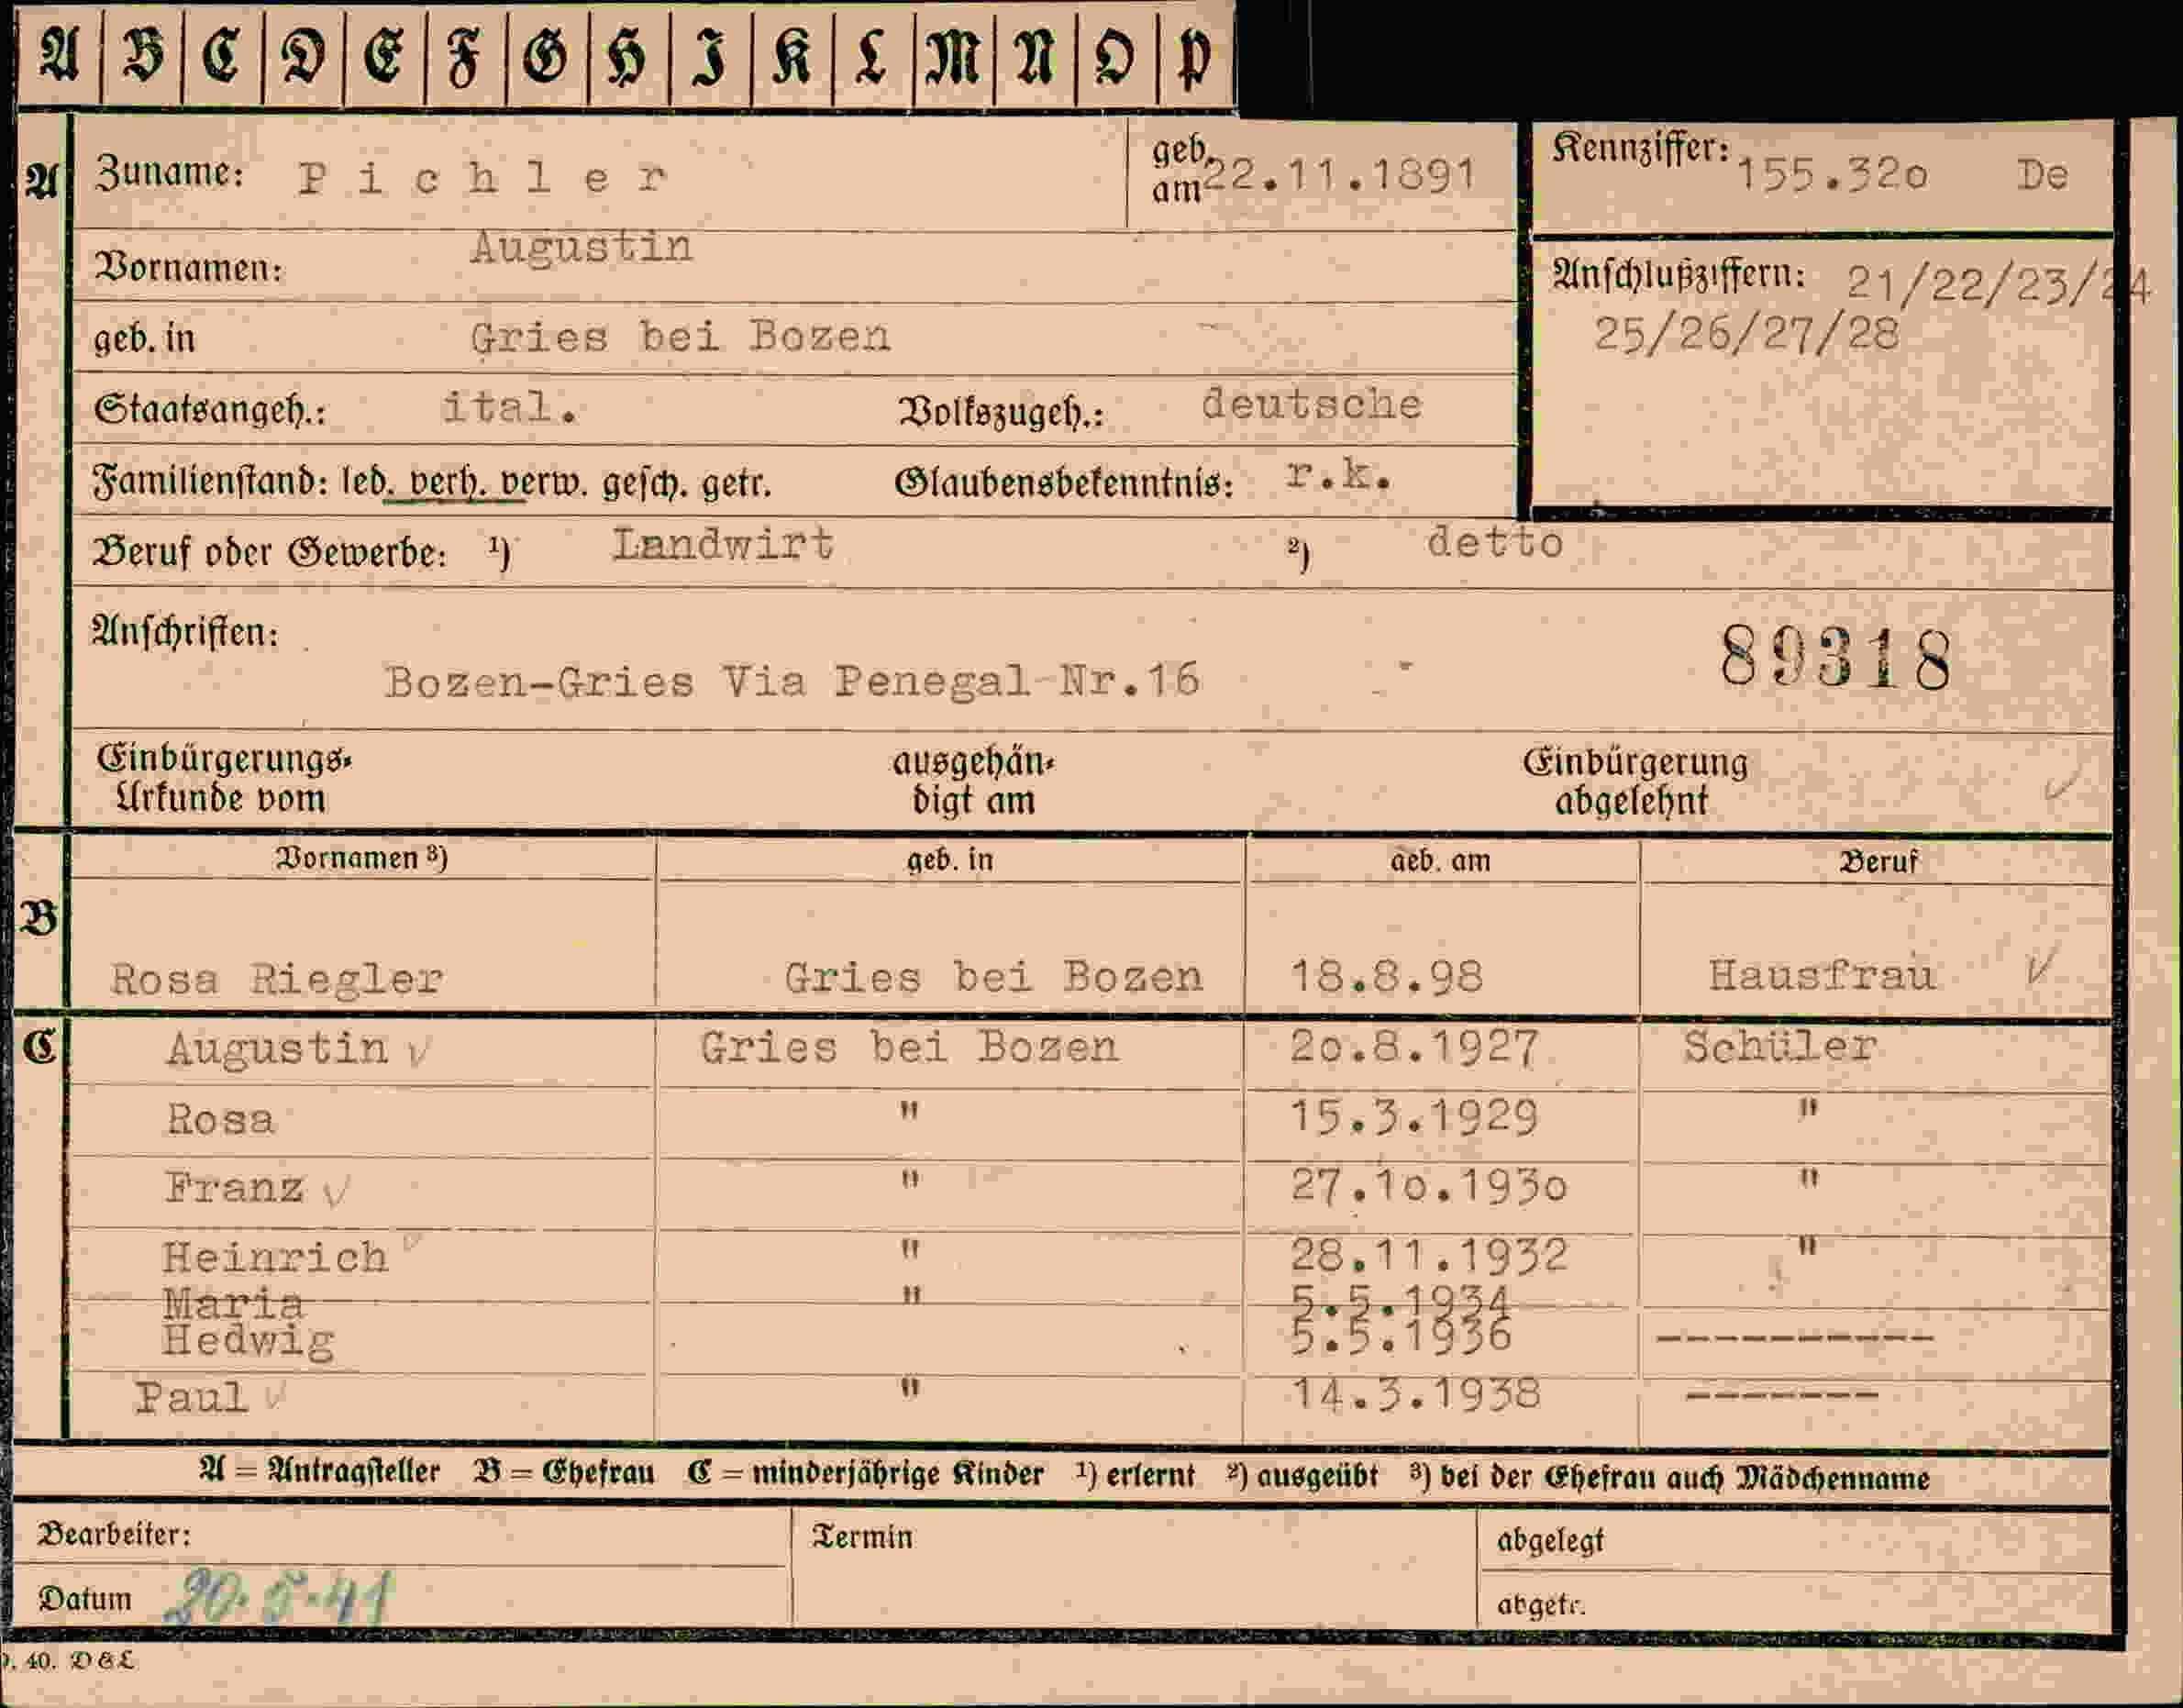 A B C D E F G H I K L M N O P
A Zuname: Pichler geb. am 22.11.1891 Kennziffer: 155.32o De
Vornamen: Augustin Anschlußziffern: 21/22/23/24
25/26/27/28
geb. in Gries bei Bozen
Staatsangeh.: ital. Volkszugeh.: deutsche
Familienstand: led. verh. verw. gesch. getr. Glaubensbekenntnis: r.k.
Beruf oder Gewerbe: ¹) Landwirt ²) detto
Anschriften: 89318
Bozen-Gries Via Penegal Nr.16
Einbürgerungs- ausgehän- Einbürgerung
Urkunde vom digt am abgelehnt
Vornamen ³) geb. in geb. am Beruf
B
Rosa Riegler Gries bei Bozen 18.8.98 Hausfrau
C Augustin Gries bei Bozen 2o.8.1927 Schüler
Rosa " 15.3.1929 "
Franz " 27.1o.193o "
Heinrich " 28.11.1932 "
Maria " 5.5.1934
Hedwig 5.5.1936 ----------
Paul " 14.3.1938 -------
A = Antragsteller B = Ehefrau C = minderjährige Kinder ¹) erlernt ²) ausgeübt ³) bei der Ehefrau auch Mädchenname
Bearbeiter: Termin abgelegt
Datum 20.5.41 abgetr.
40. D & L